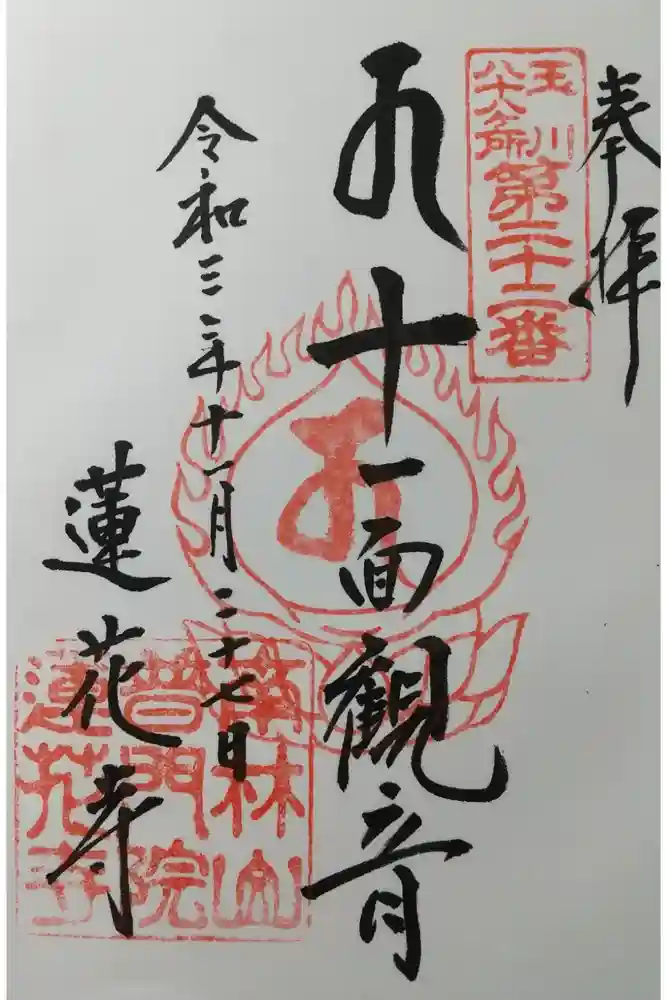 奉拝
玉川
八十八ヶ所
第二十二番
十一面觀音
令和三年十一月二十七日
蓮花寺
南林山
普門院
蓮花寺